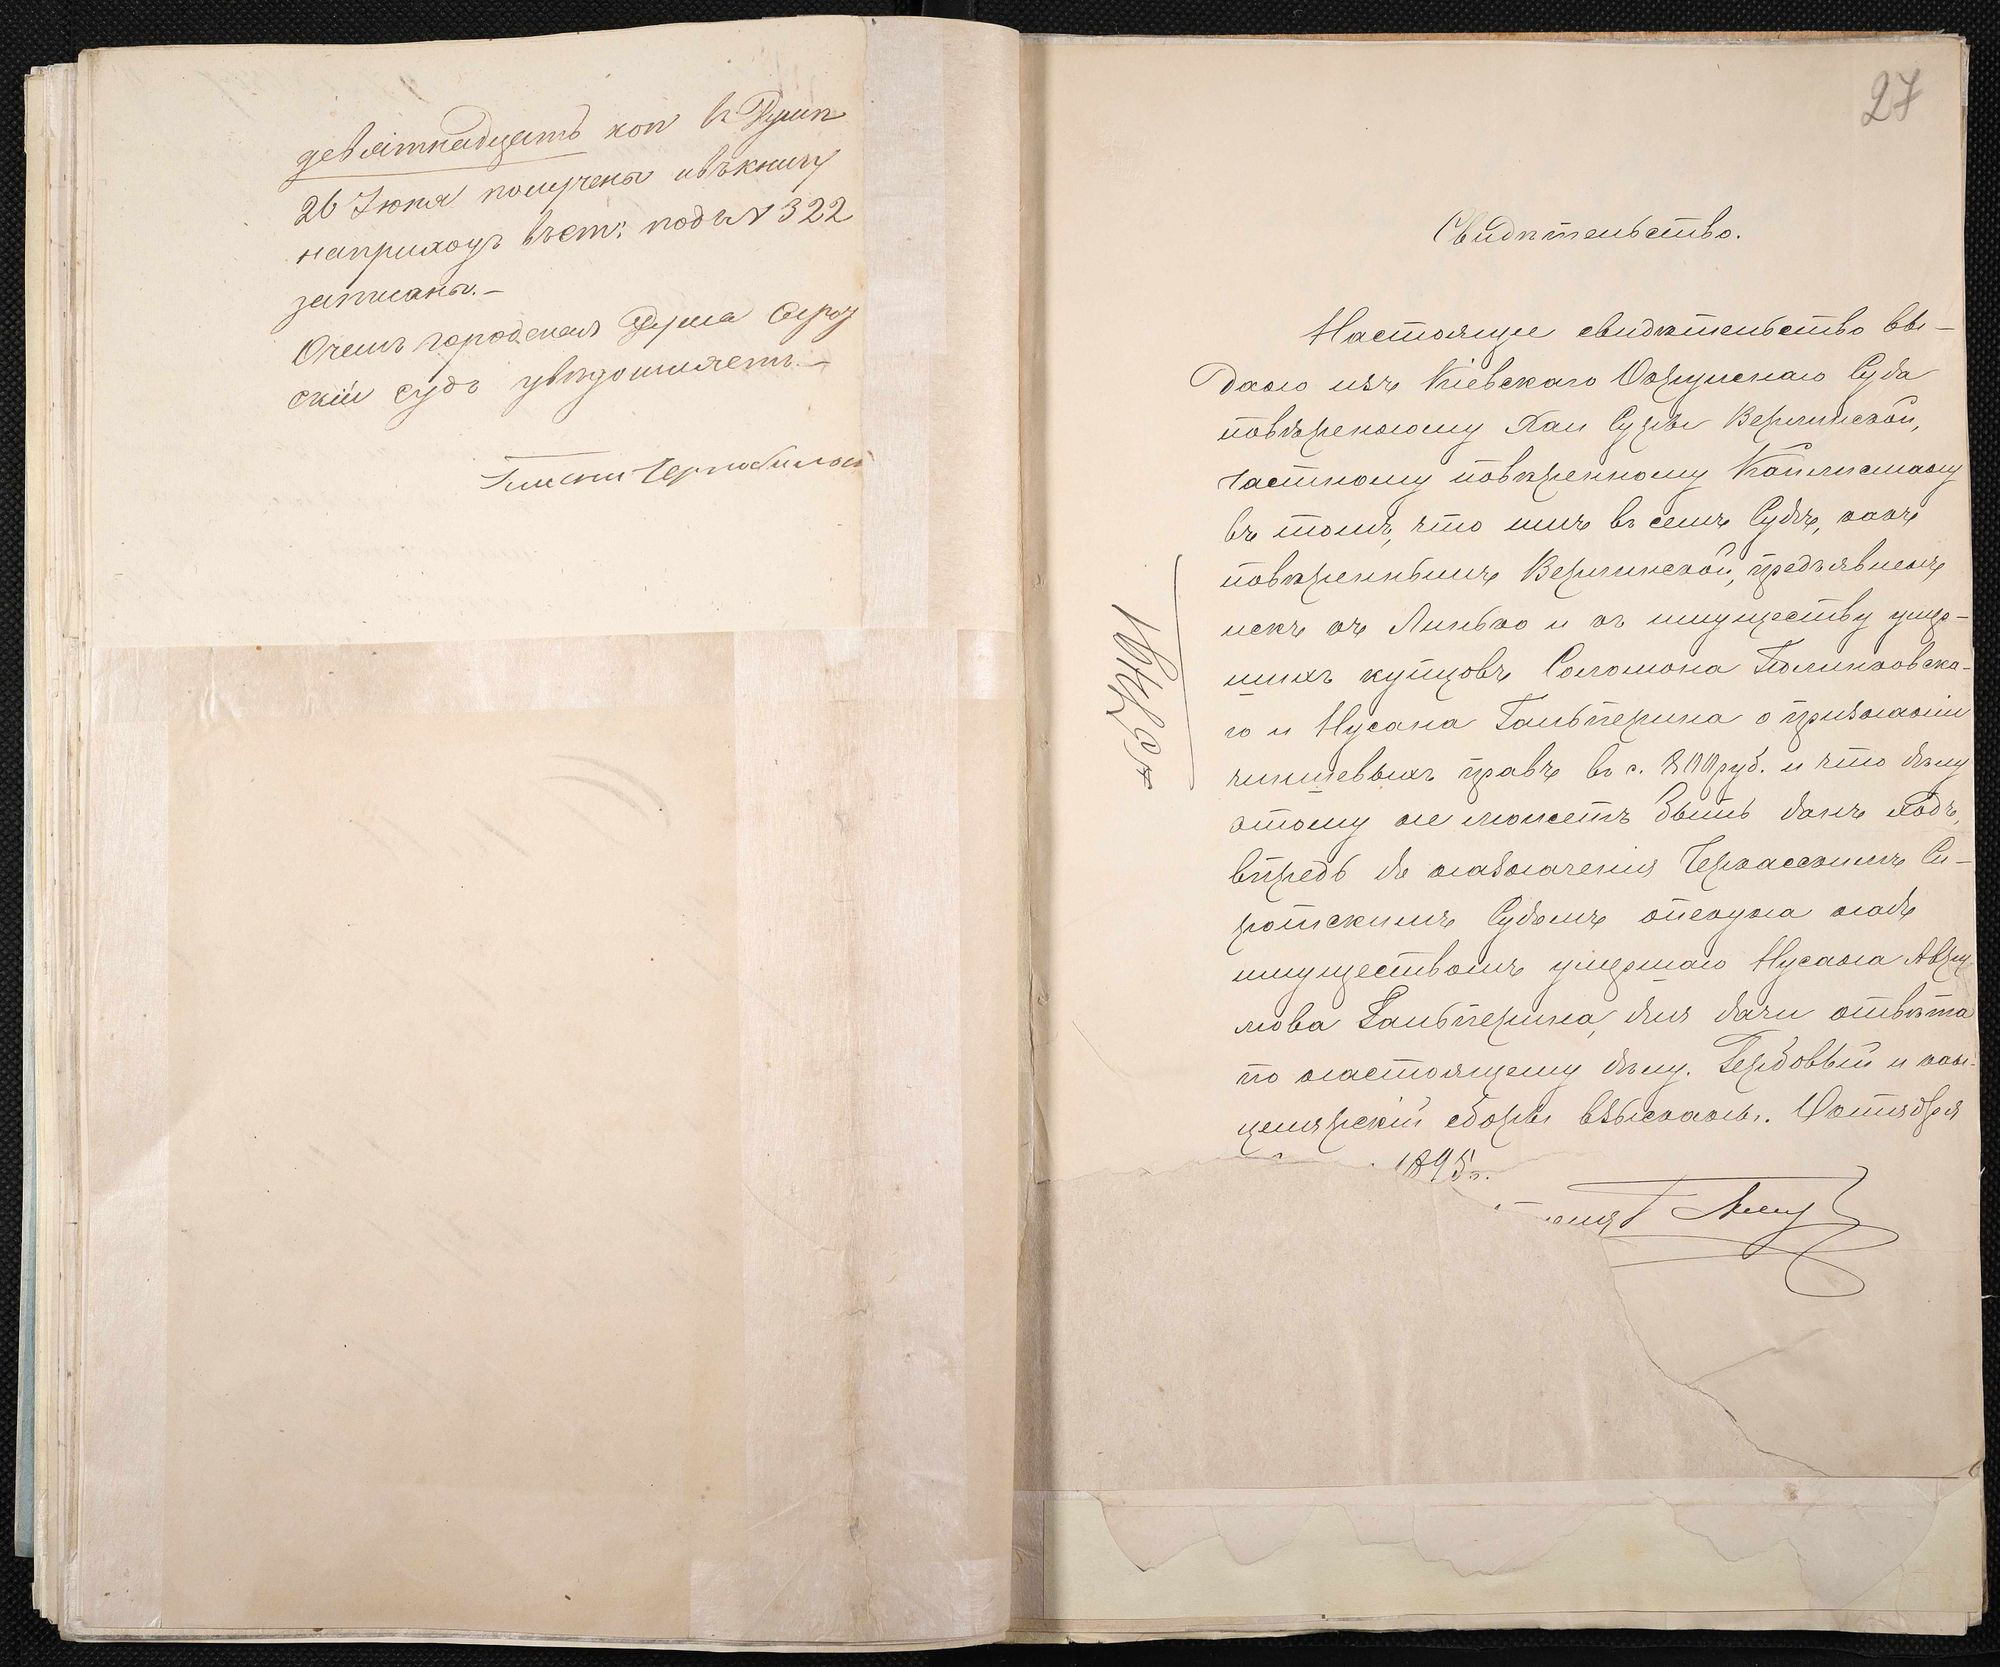 девятнадцать коп въ Думѣ
26 Іюня получены и въ книгу
на приходъ въ ст: подъ N 322
записаны.—
О чемъ городская Дума Сирот
скій судъ увѣдомляетъ.—
27
Свидѣтельство.
Настоящее свидѣтельство вы-
дано изъ Кіевскаго Окружнаго Суда
повѣренному Хаи Суры
частному повѣренному
въ томъ, что имъ въ семъ Судѣ, какъ
повѣреннымъ предъявленъ
искъ къ и къ имуществу умер-
шихъ купцовъ Соломона
го и Нусана Гальперина о признаніи
чиншевыхъ правъ въ с. 800 руб. и что дѣлу
этому не можетъ быть данъ ходъ,
впредь до назначенія Черкасскимъ Си-
ротскимъ Судомъ опекуна надъ
имуществомъ умершаго Нусана Авру
мова Гальперина, для дачи отвѣта
по настоящему дѣлу. Гербовый и кан-
целярскій сборы взысканы. Октября
1895 г.